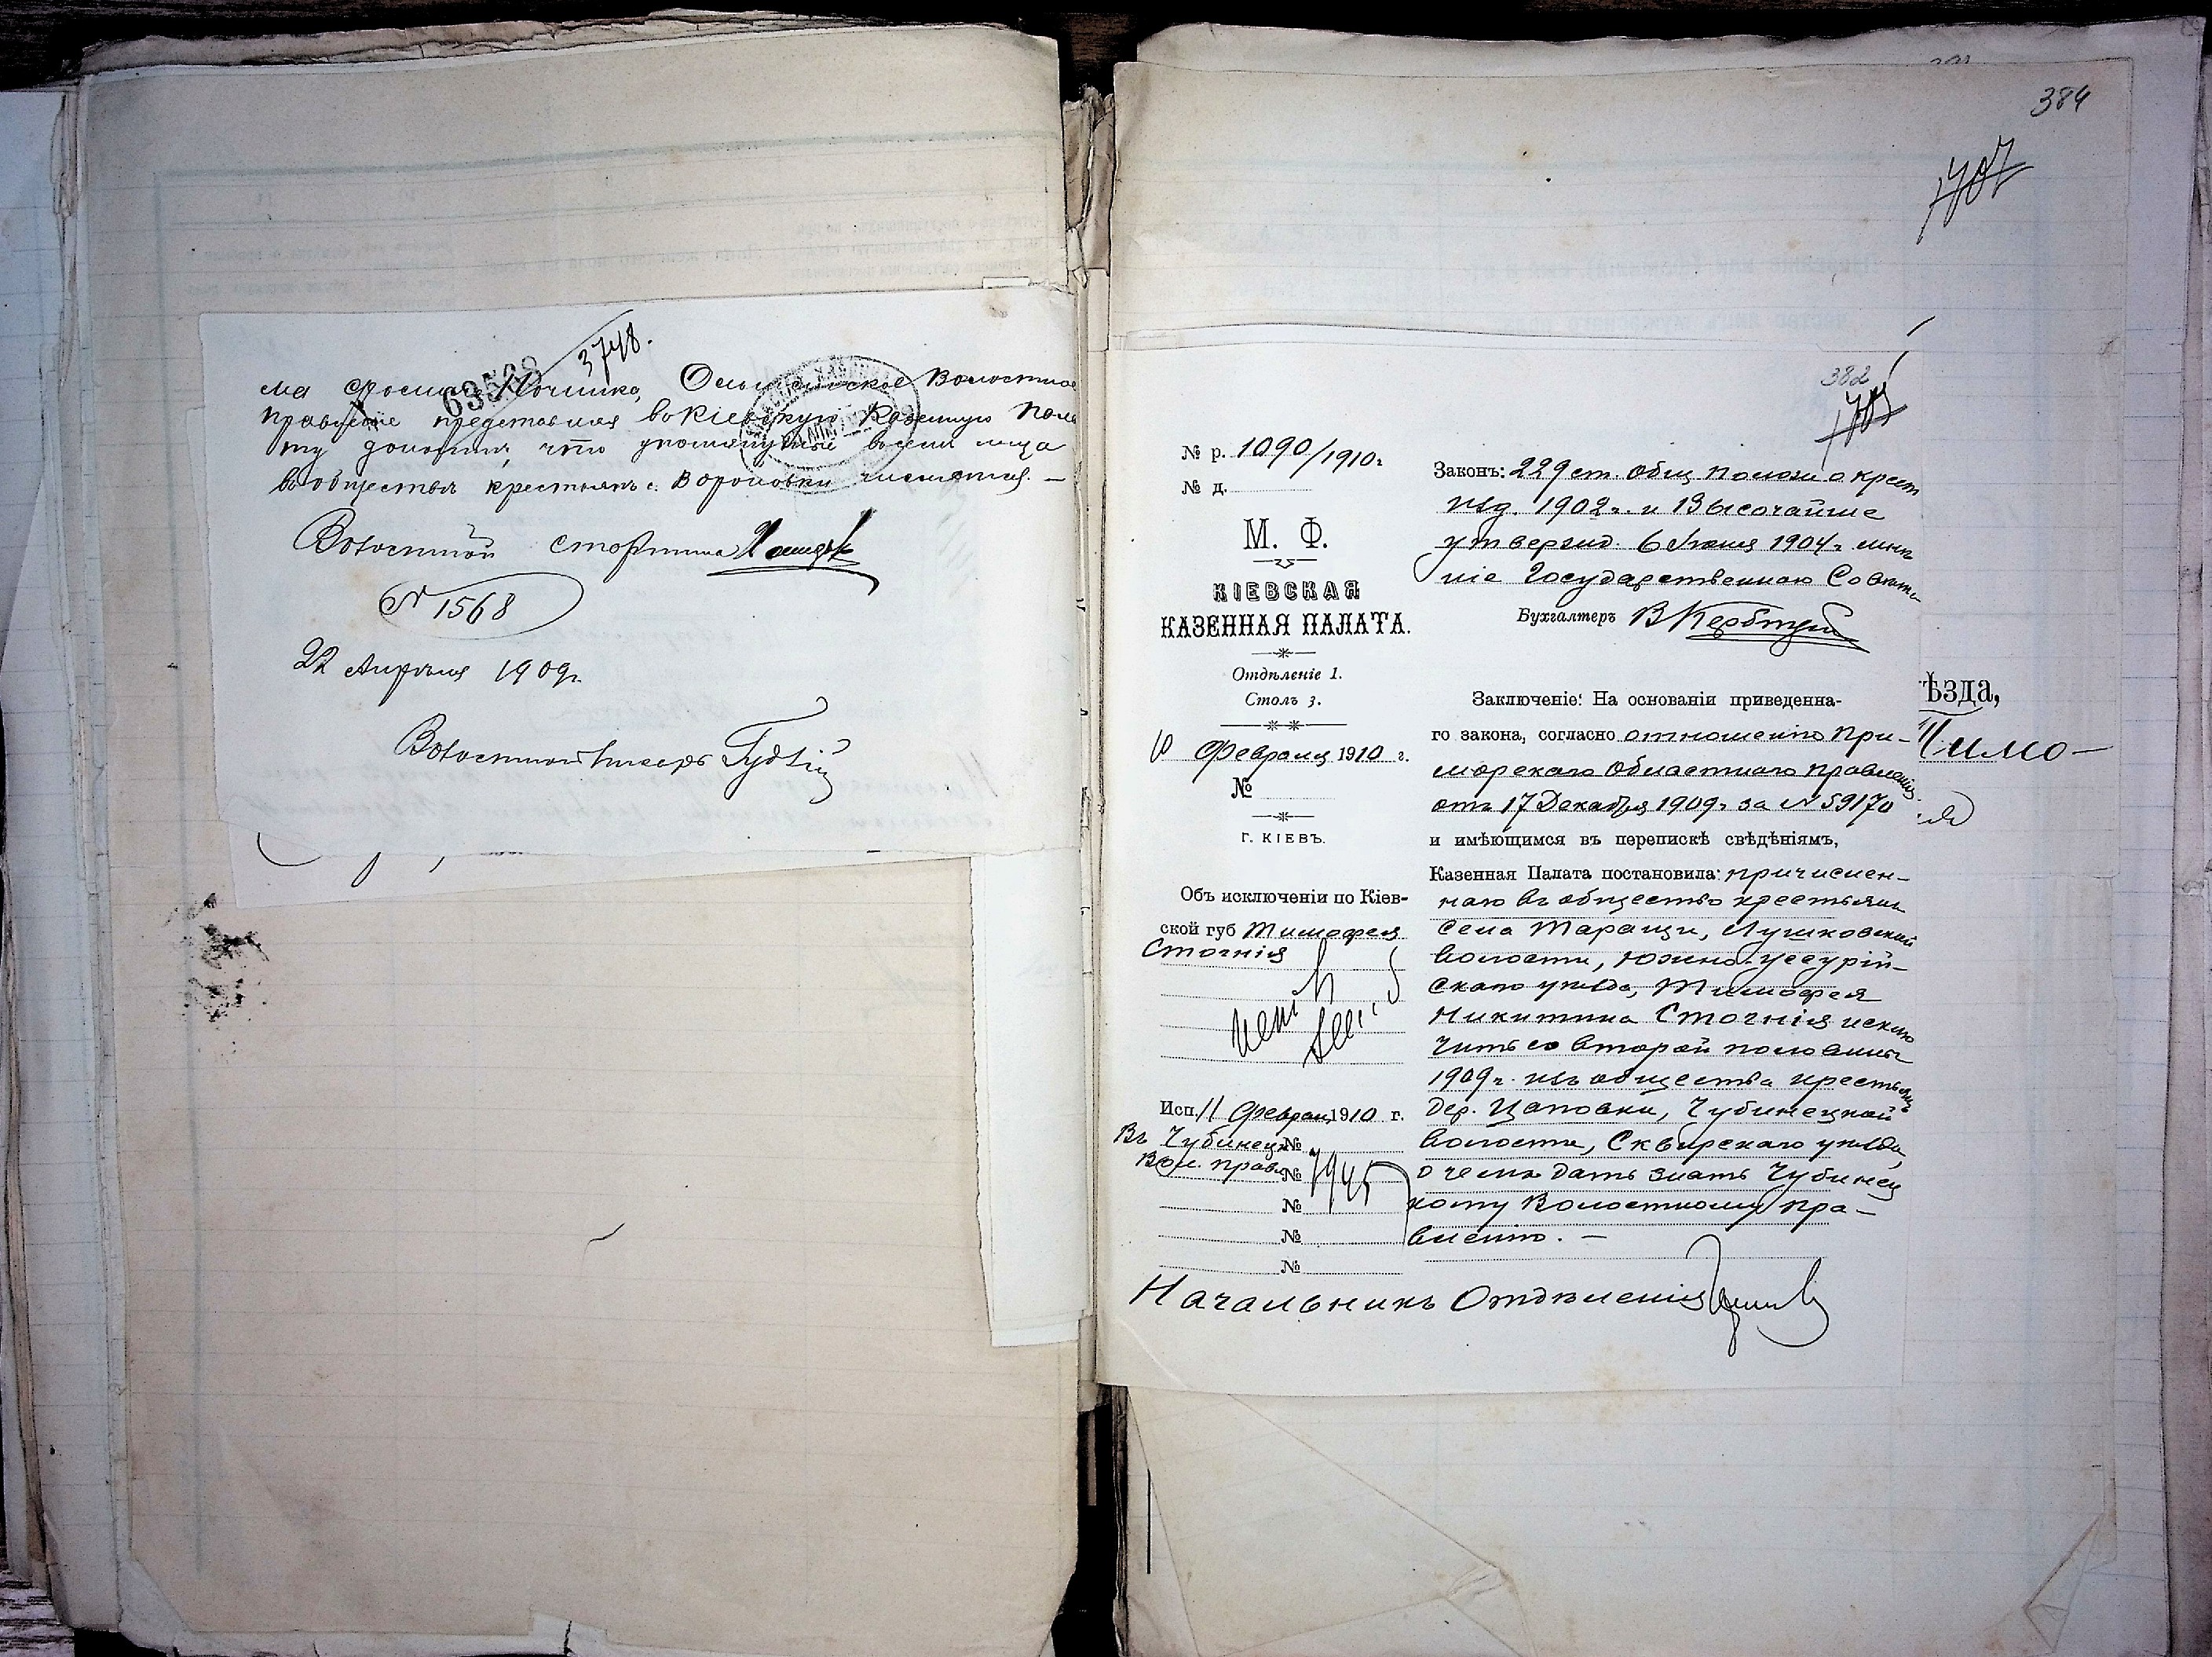 3748.
63523
Волостное
Правленіе представляя въ Кіевскую Казенную Пала
ту доноситъ, что упомянутые въ семъ лица
въ обществѣ крестьянъ с. Вороновки числятся. —
Волостной Старшина
№ 1568
22 Апрѣля 1909 г.
Волостной Писарь
384
1707
382
1705
№ р. 1090/1910 г.
№ д.
М. Ф.
КІЕВСКАЯ
КАЗЕННАЯ ПАЛАТА.
Отдѣленіе 1.
Столъ 3.
10 Февраля 1910 г.
№
Г. КІЕВЪ.
Объ исключеніи по Кіев-
ской губ Тимофея
Стогнія
Исп. 11 Феврал 1910 г.
Въ Чубинецк №
Вол. прав. № 7945
№
№
№
Законъ: 229 ст. Общ Полож о крест
изд. 1902 г. и Высочайше
утвержд. 6 Іюня 1904 г. мнѣ
ніе Государственнаго Совѣта
Бухгалтеръ
Заключеніе: На основаніи приведенна-
го закона, согласно отношенію При-
морскаго Областного Правленія
отъ 17 Декабря 1909 г. за № 59170
и имѣющимся въ перепискѣ свѣдѣніямъ,
Казенная Палата постановила: причислен-
наго въ общество крестьянъ
села Таращи, Лушковской
волости, Южно-Уссурій-
скаго уѣзда, Тимофея
Никитина Стогнія исклю
чить со второй половины
1909 г. изъ общества крестьянъ
дер. Цаповки, Чубинецкой
волости, Сквирскаго уѣзда,
о чемъ дать знать Чубинец
кому Волостному Пра-
вленію. —
Начальникъ Отдѣленія
ѣзда,
Тимо-